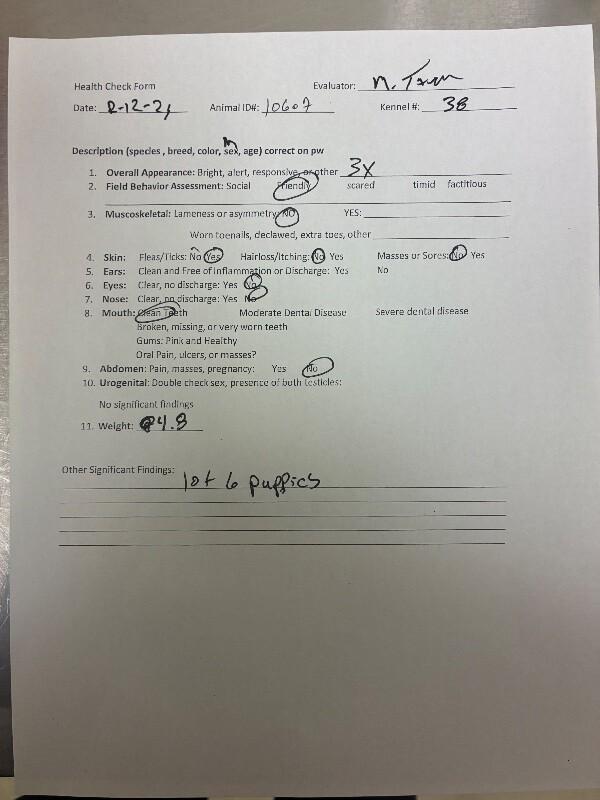 Health Check Form Evaluator:
Date: Animal ID#: 10607 Kennel #: 38
m
Description (species , breed, color, sex, age) correct on pw
1. Overall Appearance: Bright, alert, responsive, or other 3X
2. Field Behavior Assessment: Social Friendly scared timid factitious
3. Muscoskeletal: Lameness or asymmetry: NO YES:
Worn toenails, declawed, extra toes, other
4. Skin: Fleas/Ticks: No Yes Hairloss/Itching: No Yes Masses or Sores: No Yes
5. Ears: Clean and Free of Inflammation or Discharge: Yes No
6. Eyes: Clear, no discharge: Yes No
7. Nose: Clear, no discharge: Yes No
8. Mouth: Clean Teeth Moderate Dental Disease Severe dental disease
Broken, missing, or very worn teeth
Gums: Pink and Healthy
Oral Pain, ulcers, or masses?
9. Abdomen: Pain, masses, pregnancy: Yes No
10. Urogenital: Double check sex, presence of both testicles:
No significant findings
11. Weight: 4.8
Other Significant Findings:
1 of 6 puppies